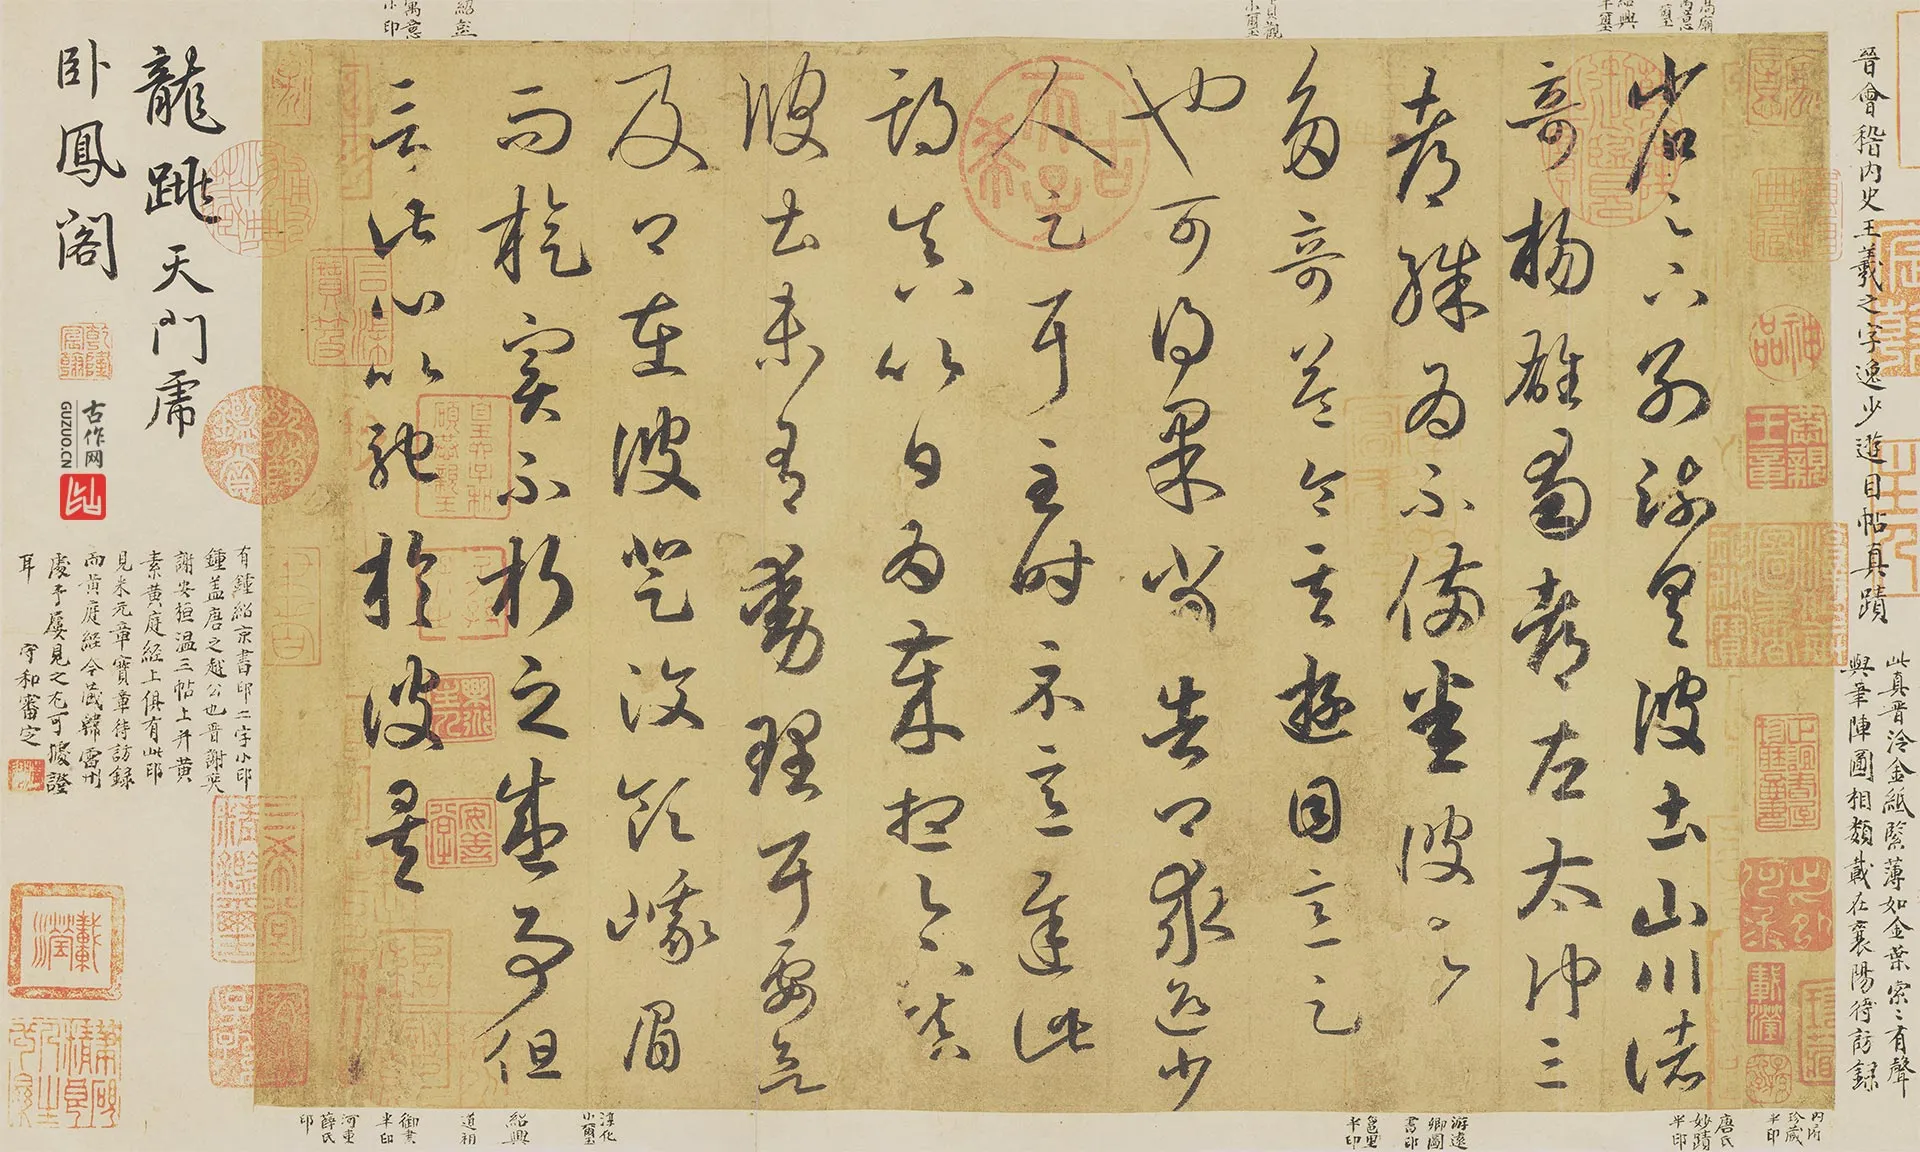 晉會稽內史王羲之字逸少遊目帖真蹟
此真晉冷金紙緊薄如金葉索〻有聲
與筆陣圖相類載在襄陽待訪錄
省足下別疏具彼土山川諸
奇楊雄蜀都左太沖三
都殊為不備悉彼故為
多奇益令其遊目意足
也可得果當告卿求迎少
人足耳至時示意遲此
期真以日為歲想足下鎮
彼土未有動理耳要欲
及卿在彼登汶領峨眉
而旋實不朽之盛事但
言此心以馳於彼矣
龍跳天門虎
臥鳳閣
乾隆宸翰
古作网
GUZUO.CN
有鍾紹京書印二字小印
鍾蓋唐之越公也晉謝奕
謝安桓温三帖上并黄
素黄庭經上俱有此印
見米元章寶章待訪錄
而黄庭經今藏韓
處予屢見之尤可據證
耳 守和審定
貞觀
小璽
紹興
內府
珍藏
半印
唐氏
妙蹟
半印
游遠
卿圖
書印
半印
淳化
小璽
紹興
御書
半印
河東
薛氏
印